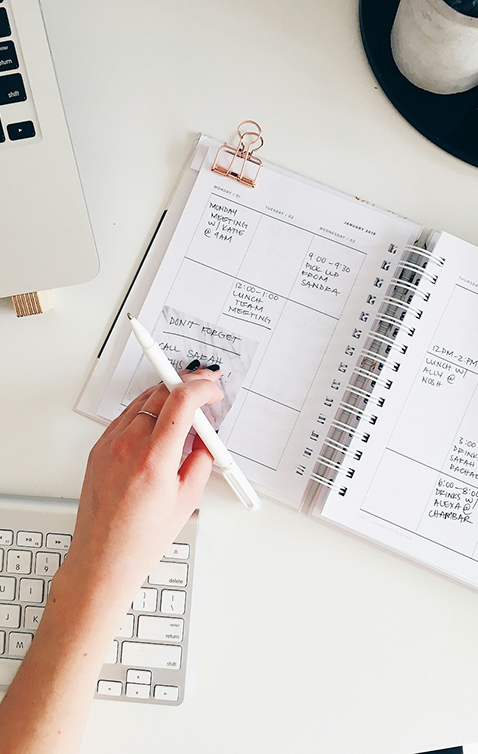 MONDAY / 01
TUESDAY / 02
WEDNESDAY / 03
JANUARY 2018
MONDAY
MEETING
W/ KATIE
@ 9AM
9:00 - 9:30
PICK UP
FROM
SANDRA
12:00-1:00
LUNCH
TEAM
MEETING
DON'T FORGET
CALL SARAH
!
THURSDAY
12PM-2PM
LUNCH W/
ALLY @
NOSH
3:00
DRINKS
SARAH
6:00-8:00
DRINKS W/
ALEXA @
CHAMBAR
return
shift
delete
enter
return
shift
8
9
I
K
M